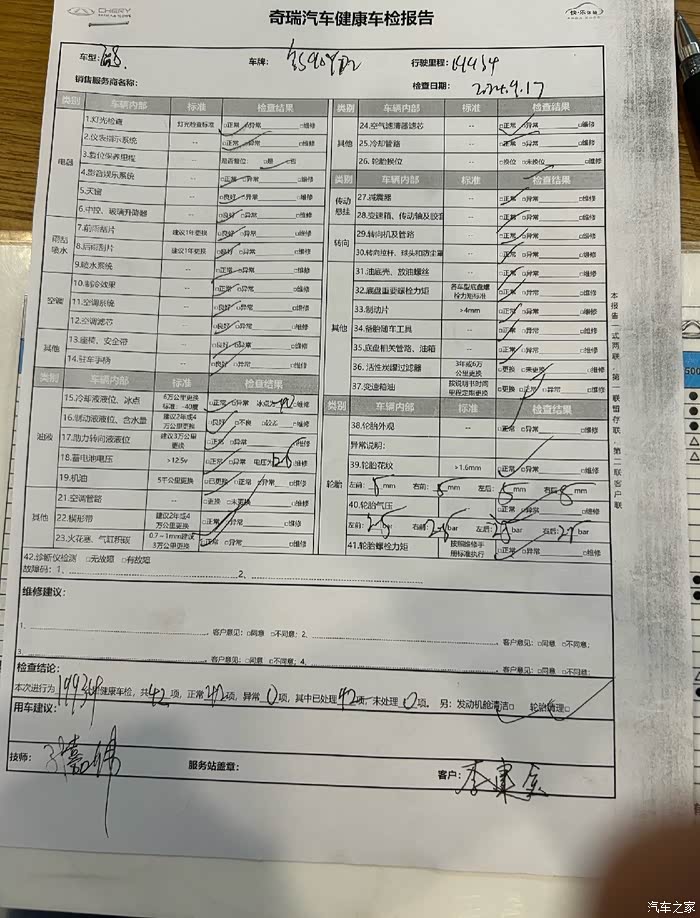 CHERY
奇瑞汽车健康车检报告
快·乐体验
车型: 车牌: 行驶里程:
销售服务商名称: 检查日期: 2024.9.17
类别 车辆内部 标准 检查结果
电器
1.灯光检查 灯光检查标准 □正常 □异常 □维修
2.仪表指示系统 -- □正常 □异常 □维修
3.复位保养里程 是否复位: □是 □否
4.影音娱乐系统 -- □正常 □异常 □维修
5.天窗 -- □良好 □异常 □维修
6.中控、玻璃升降器 -- □良好 □异常 □维修
雨刮喷水
7.前雨刮片 建议1年更换 □良好 □异常 □维修
8.后雨刮片 建议1年更换 □良好 □异常 □维修
9.喷水系统 -- □正常 □异常 □维修
空调
10.制冷效果 -- □正常 □异常 □维修
11.空调系统 -- □良好 □异常 □维修
12.空调滤芯 -- □良好 □异常 □维修
其他
13.座椅、安全带 -- □良好 □异常 □维修
14.驻车手柄 -- □良好 □异常 □维修
类别 车辆内部 标准 检查结果
油液
15.冷却液液位、冰点 6万公里更换 标准: -40度 □正常 □异常 冰点 □维修
16.制动液液位、含水量 建议2年或4万公里更换 □良好 □不良 □维修
17.助力转向液液位 建议3万公里更换 □正常 □异常 □维修
18.蓄电池电压 >12.5v □正常 □异常 电压为 □维修
19.机油 5千公里更换 □已更换 □正常 □异常 □维修
其他
21.空调管路 -- □更换 □未更换 □维修
22.楔形带 建议2年或4万公里更换 □正常 □异常 □维修
23.火花塞、气缸积碳 0.7~1mm建议3万公里更换 □正常 □异常 □维修
类别 车辆内部 标准 检查结果
其他
24.空气滤清器滤芯 -- □正常 □异常 □维修
25.冷却管路 -- □正常 □异常 □维修
26.轮胎换位 -- □换位 □未换位 □维修
类别 车辆内部 标准 检查结果
传动悬挂
27.减震器 -- □正常 □异常 □维修
28.变速箱、传动轴及胶套 -- □正常 □异常 □维修
转向
29.转向机及管路 -- □正常 □异常 □维修
30.转向拉杆、球头和防尘罩 -- □正常 □异常 □维修
其他
31.油底壳、放油螺丝 -- □正常 □异常 □维修
32.底盘重要螺栓力矩 各车型底盘螺栓力矩标准 □正常 □异常 □维修
33.制动片 >4mm □正常 □异常 □维修
34.备胎随车工具 -- □正常 □异常 □维修
35.底盘相关管路、油箱 -- □正常 □异常 □维修
36.活性炭罐过滤器 3年或6万公里更换 □更换 □未更换 □维修
37.变速箱油 按说明书时间里程定期更换 □更换 □正常 □异常 □维修
类别 车辆内部 标准 检查结果
轮胎
38.轮胎外观 -- □正常 □异常 □维修
异常说明:
39.轮胎花纹 >1.6mm □正常 □异常 □维修
左前: mm 右前: mm 左后: 5mm 右后: 8mm
40.轮胎气压 □正常 □异常 □维修
左前: bar 右前: bar 左后: bar 右后: bar
41.轮胎螺栓力矩 按照维修手册标准执行 □正常 □异常 □维修
42.诊断仪检测 □无故障 □有故障
故障码: 1、 2、
维修建议:
1. 客户意见: □同意 □不同意; 2. 客户意见: □同意 □不同意;
3. 客户意见: □同意 □不同意; 4. 客户意见: □同意 □不同意;
检查结论:
本次进行为 健康车检, 共42项, 正常42项, 异常0项, 其中已处理42项, 未处理0项。 另: 发动机舱清洁□ 轮胎清理□
用车建议:
技师: 服务站盖章: 客户: 李建
本报告一式两联 第一联留存联 第二联客户联
汽车之家